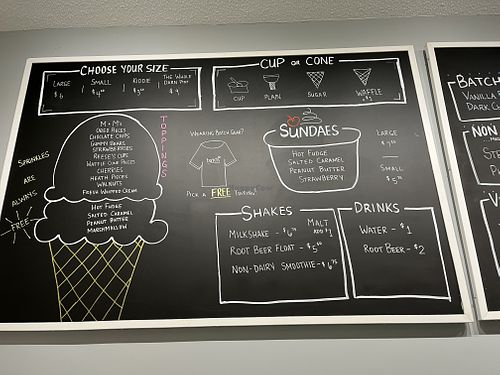 CHOOSE YOUR SIZE
LARGE
$6
SMALL
KIDDIE
THE WHOLE
DARN POT
$9
CUP OR CONE
CUP
PLAIN
SUGAR
WAFFLE
+$2
TOPPINGS
M & M'S
OREO PIECES
CHOCOLATE CHIPS
GUMMY BEARS
STRAWBERRIES
REESE'S CUPS
WAFFLE CONE PIECES
CHERRIES
HEATH PIECES
WALNUTS
FRESH WHIPPED CREAM
HOT FUDGE
SALTED CARAMEL
PEANUT BUTTER
MARSHMALLOW
SPRINKLES
ARE
ALWAYS
FREE
WEARING BATCH GEAR?
PICK A FREE TOPPING!
SUNDAES
HOT FUDGE
SALTED CARAMEL
PEANUT BUTTER
STRAWBERRY
LARGE
SMALL
SHAKES
MILKSHAKE -
MALT
ADD $1
ROOT BEER FLOAT -
NON-DAIRY SMOOTHIE -
DRINKS
WATER - $1
ROOT BEER - $2
BATCH
VANILLA
DARK C
NON